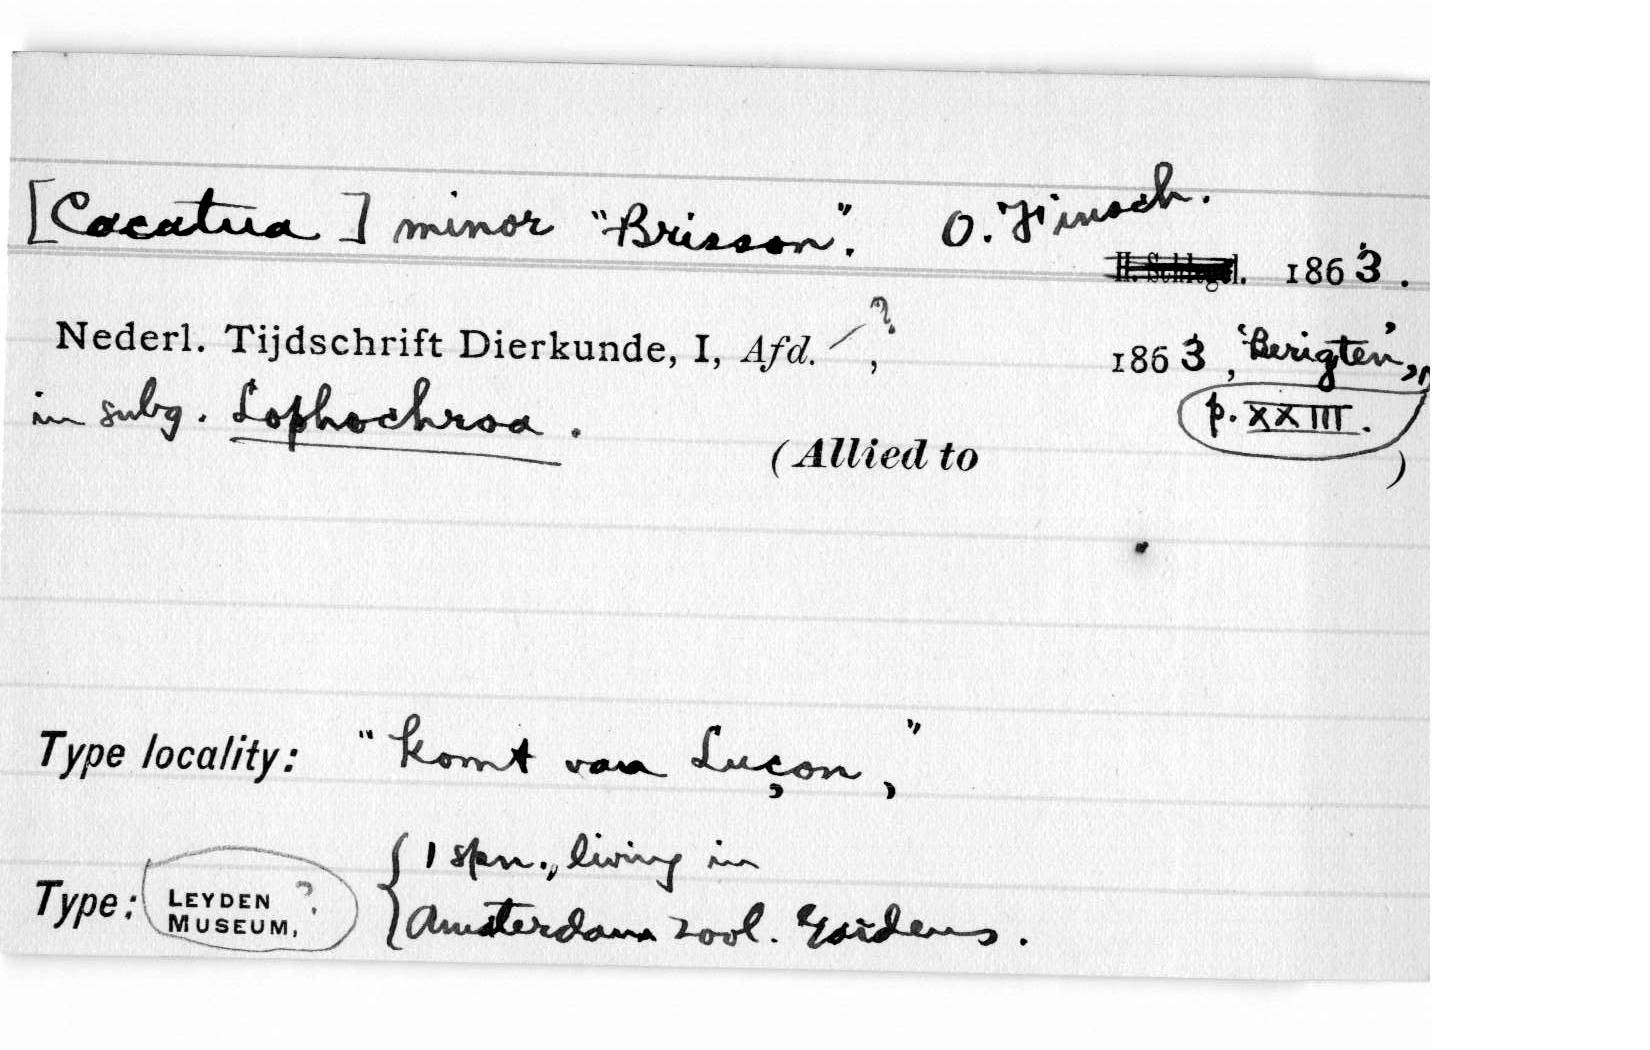 [Cacatua] minor "Brisson". O. Finsch.
H. Schlegel. 1863.
Nederl. Tijdschrift Dierkunde, I, Afd. ?, 1863, 'Berigten',
in subg. Lophochroa. p. XXIII.
(Allied to )
Type locality: "komt van Luçon,"
Type: LEYDEN ? { 1 spn., living in
MUSEUM, Amsterdam zool. Gardens.